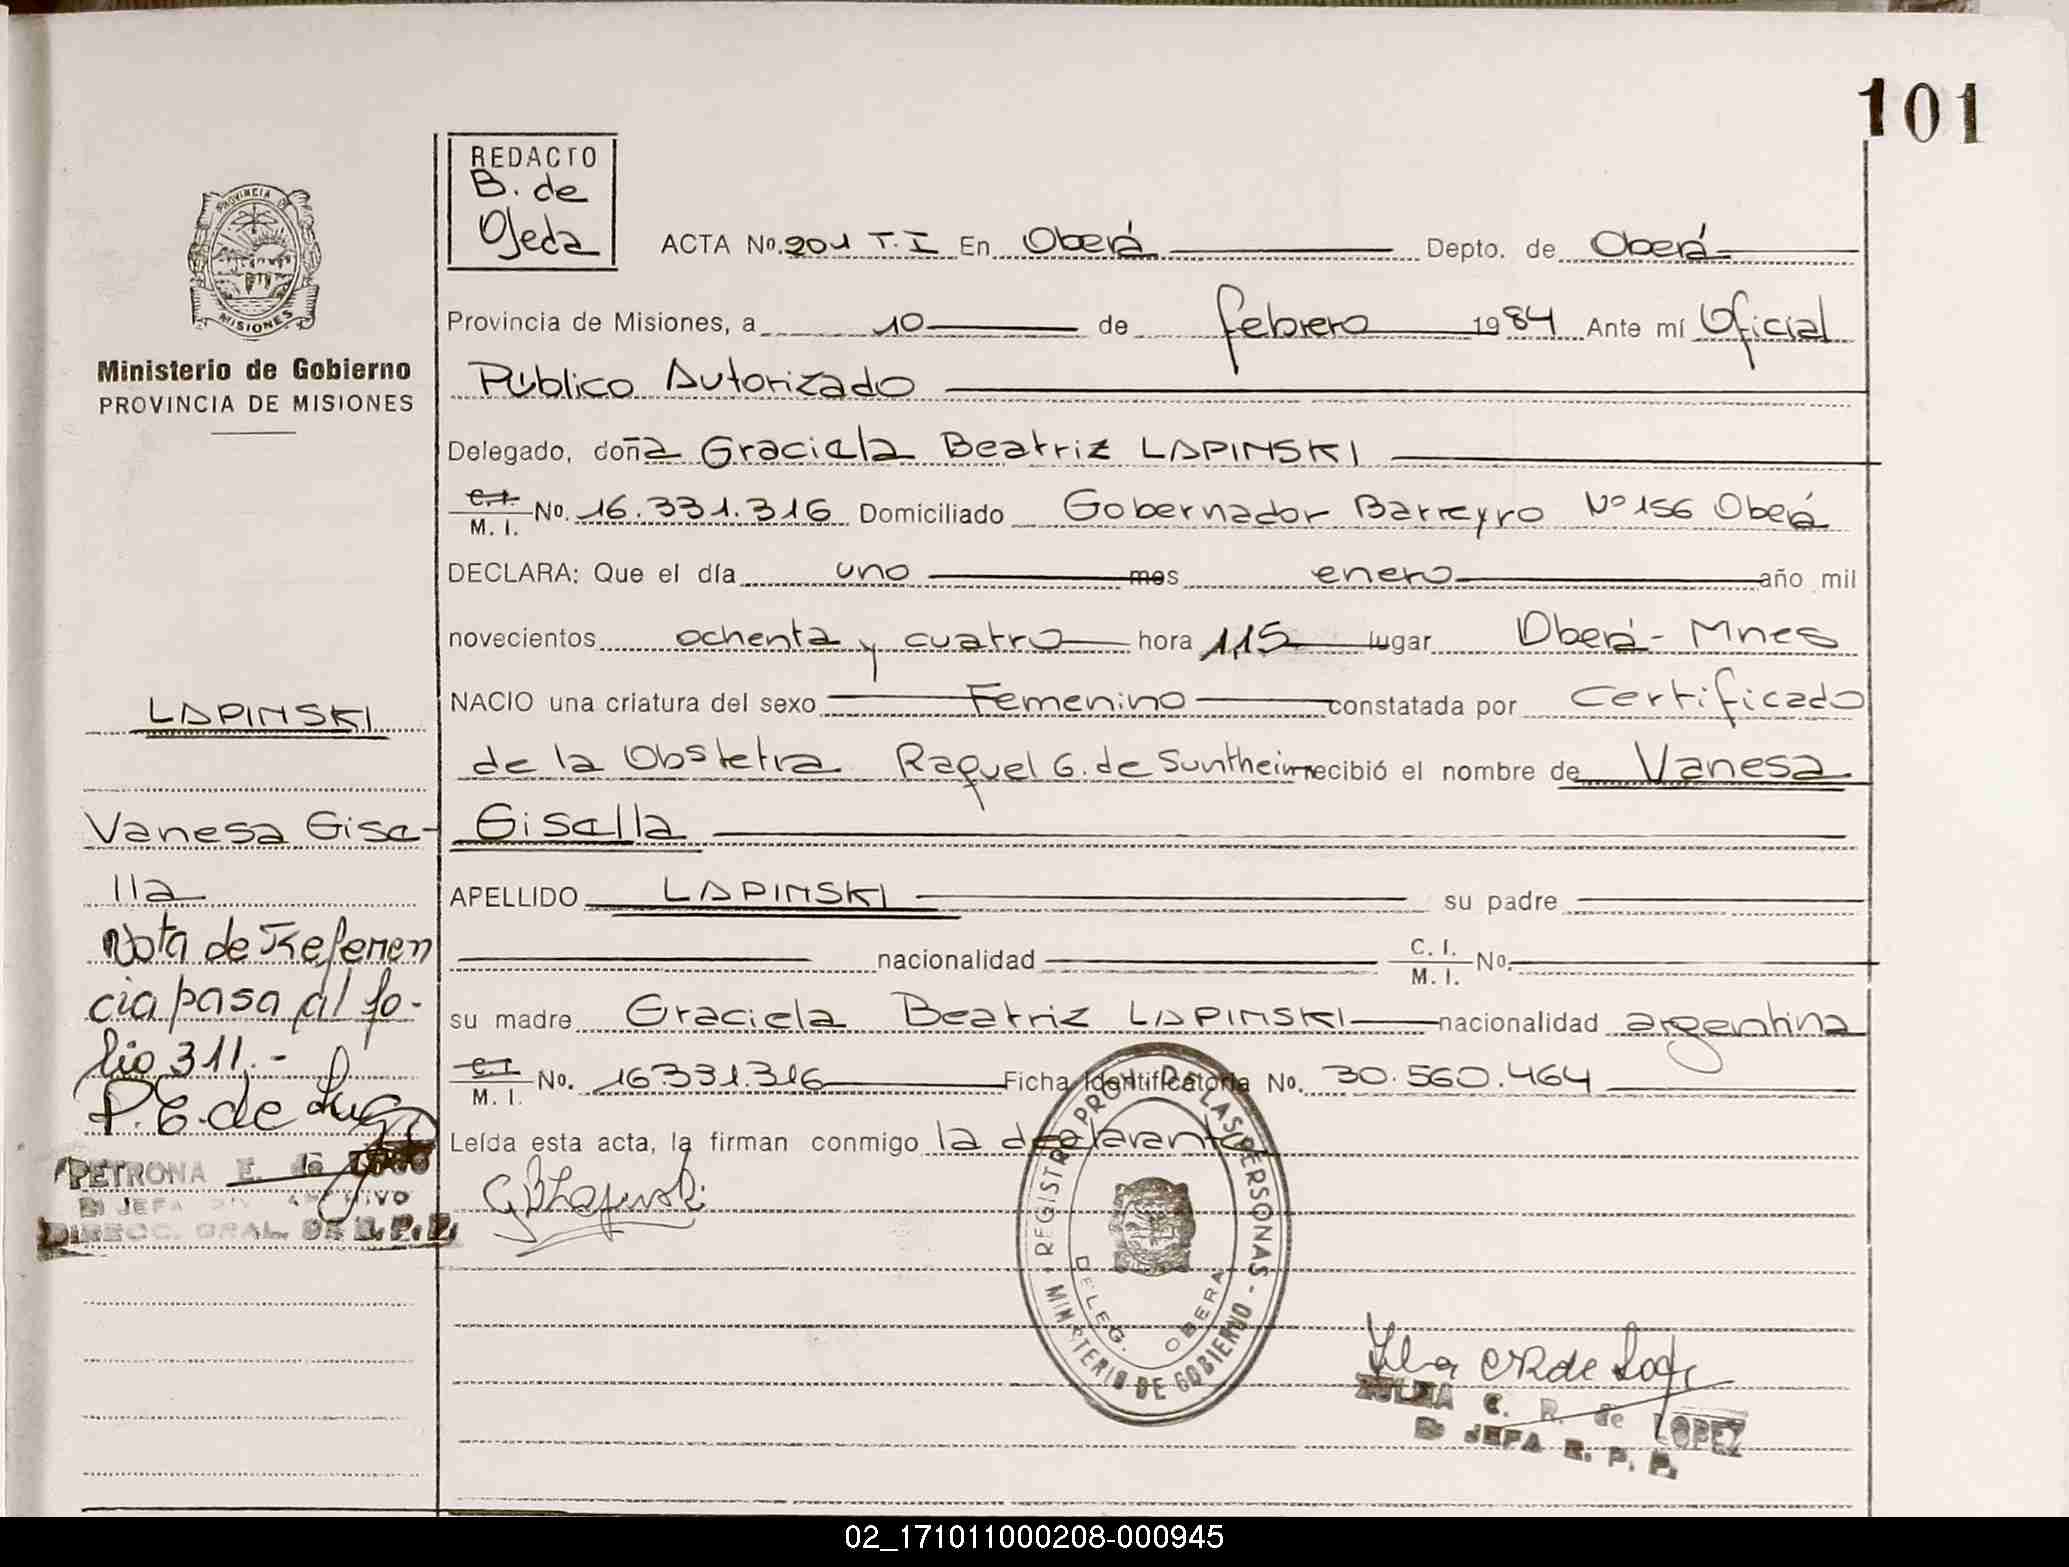 101
REDACTO
B. de
Ojeda
PROVINCIA DE
MISIONES
Ministerio de Gobierno
PROVINCIA DE MISIONES
ACTA No. 201 T.I En Oberá Depto. de Oberá
Provincia de Misiones, a 10 de febrero 1984 Ante mí Oficial
Público Autorizado
Delegado, doña Graciela Beatriz LAPINSKI
C.I. M. I. No. 16.331.316 Domiciliado Gobernador Barreyro Nº 156 Oberá
DECLARA: Que el día uno mes enero año mil
novecientos ochenta y cuatro hora 1,15 lugar Oberá - Mnes
NACIO una criatura del sexo Femenino constatada por Certificado
de la Obstetra Raquel G. de Suntheim recibió el nombre de Vanesa
Gisella
APELLIDO LAPINSKI su padre
nacionalidad C. I. M. I. No.
su madre Graciela Beatriz LAPINSKI nacionalidad argentina
C.I. M. I. No. 16.331.316 Ficha Identificatoria No. 30.560.464
Leída esta acta, la firman conmigo la declarante
LAPINSKI
Vanesa Gise-
lla
Nota de Referen
cia pasa al fo-
lio 311.-
P.E. de Lugo
PETRONA E. de
JEFA DIV. ARCHIVO
DIRECC. GRAL. DE R. P. P.
REGISTRO PROV. DE LAS PERSONAS - MINISTERIO DE GOBIERNO
DELEG. OBERA
ZULMA C. R. de LOPEZ
JEFA R. P. P.
02_171011000208-000945